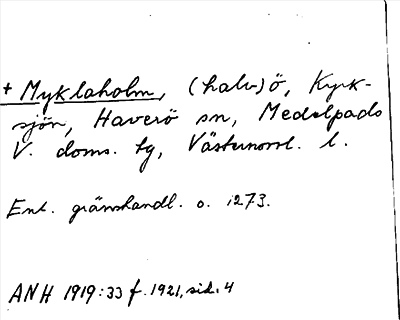 + Myklaholm, (halv)ö, Kyrk-
sjön, Haverö sn, Medelpads
V. doms. tg, Västernorrl. l.
Enl. gränshandl. o. 1273.
ANH 1919:33 f. 1921, sid. 4